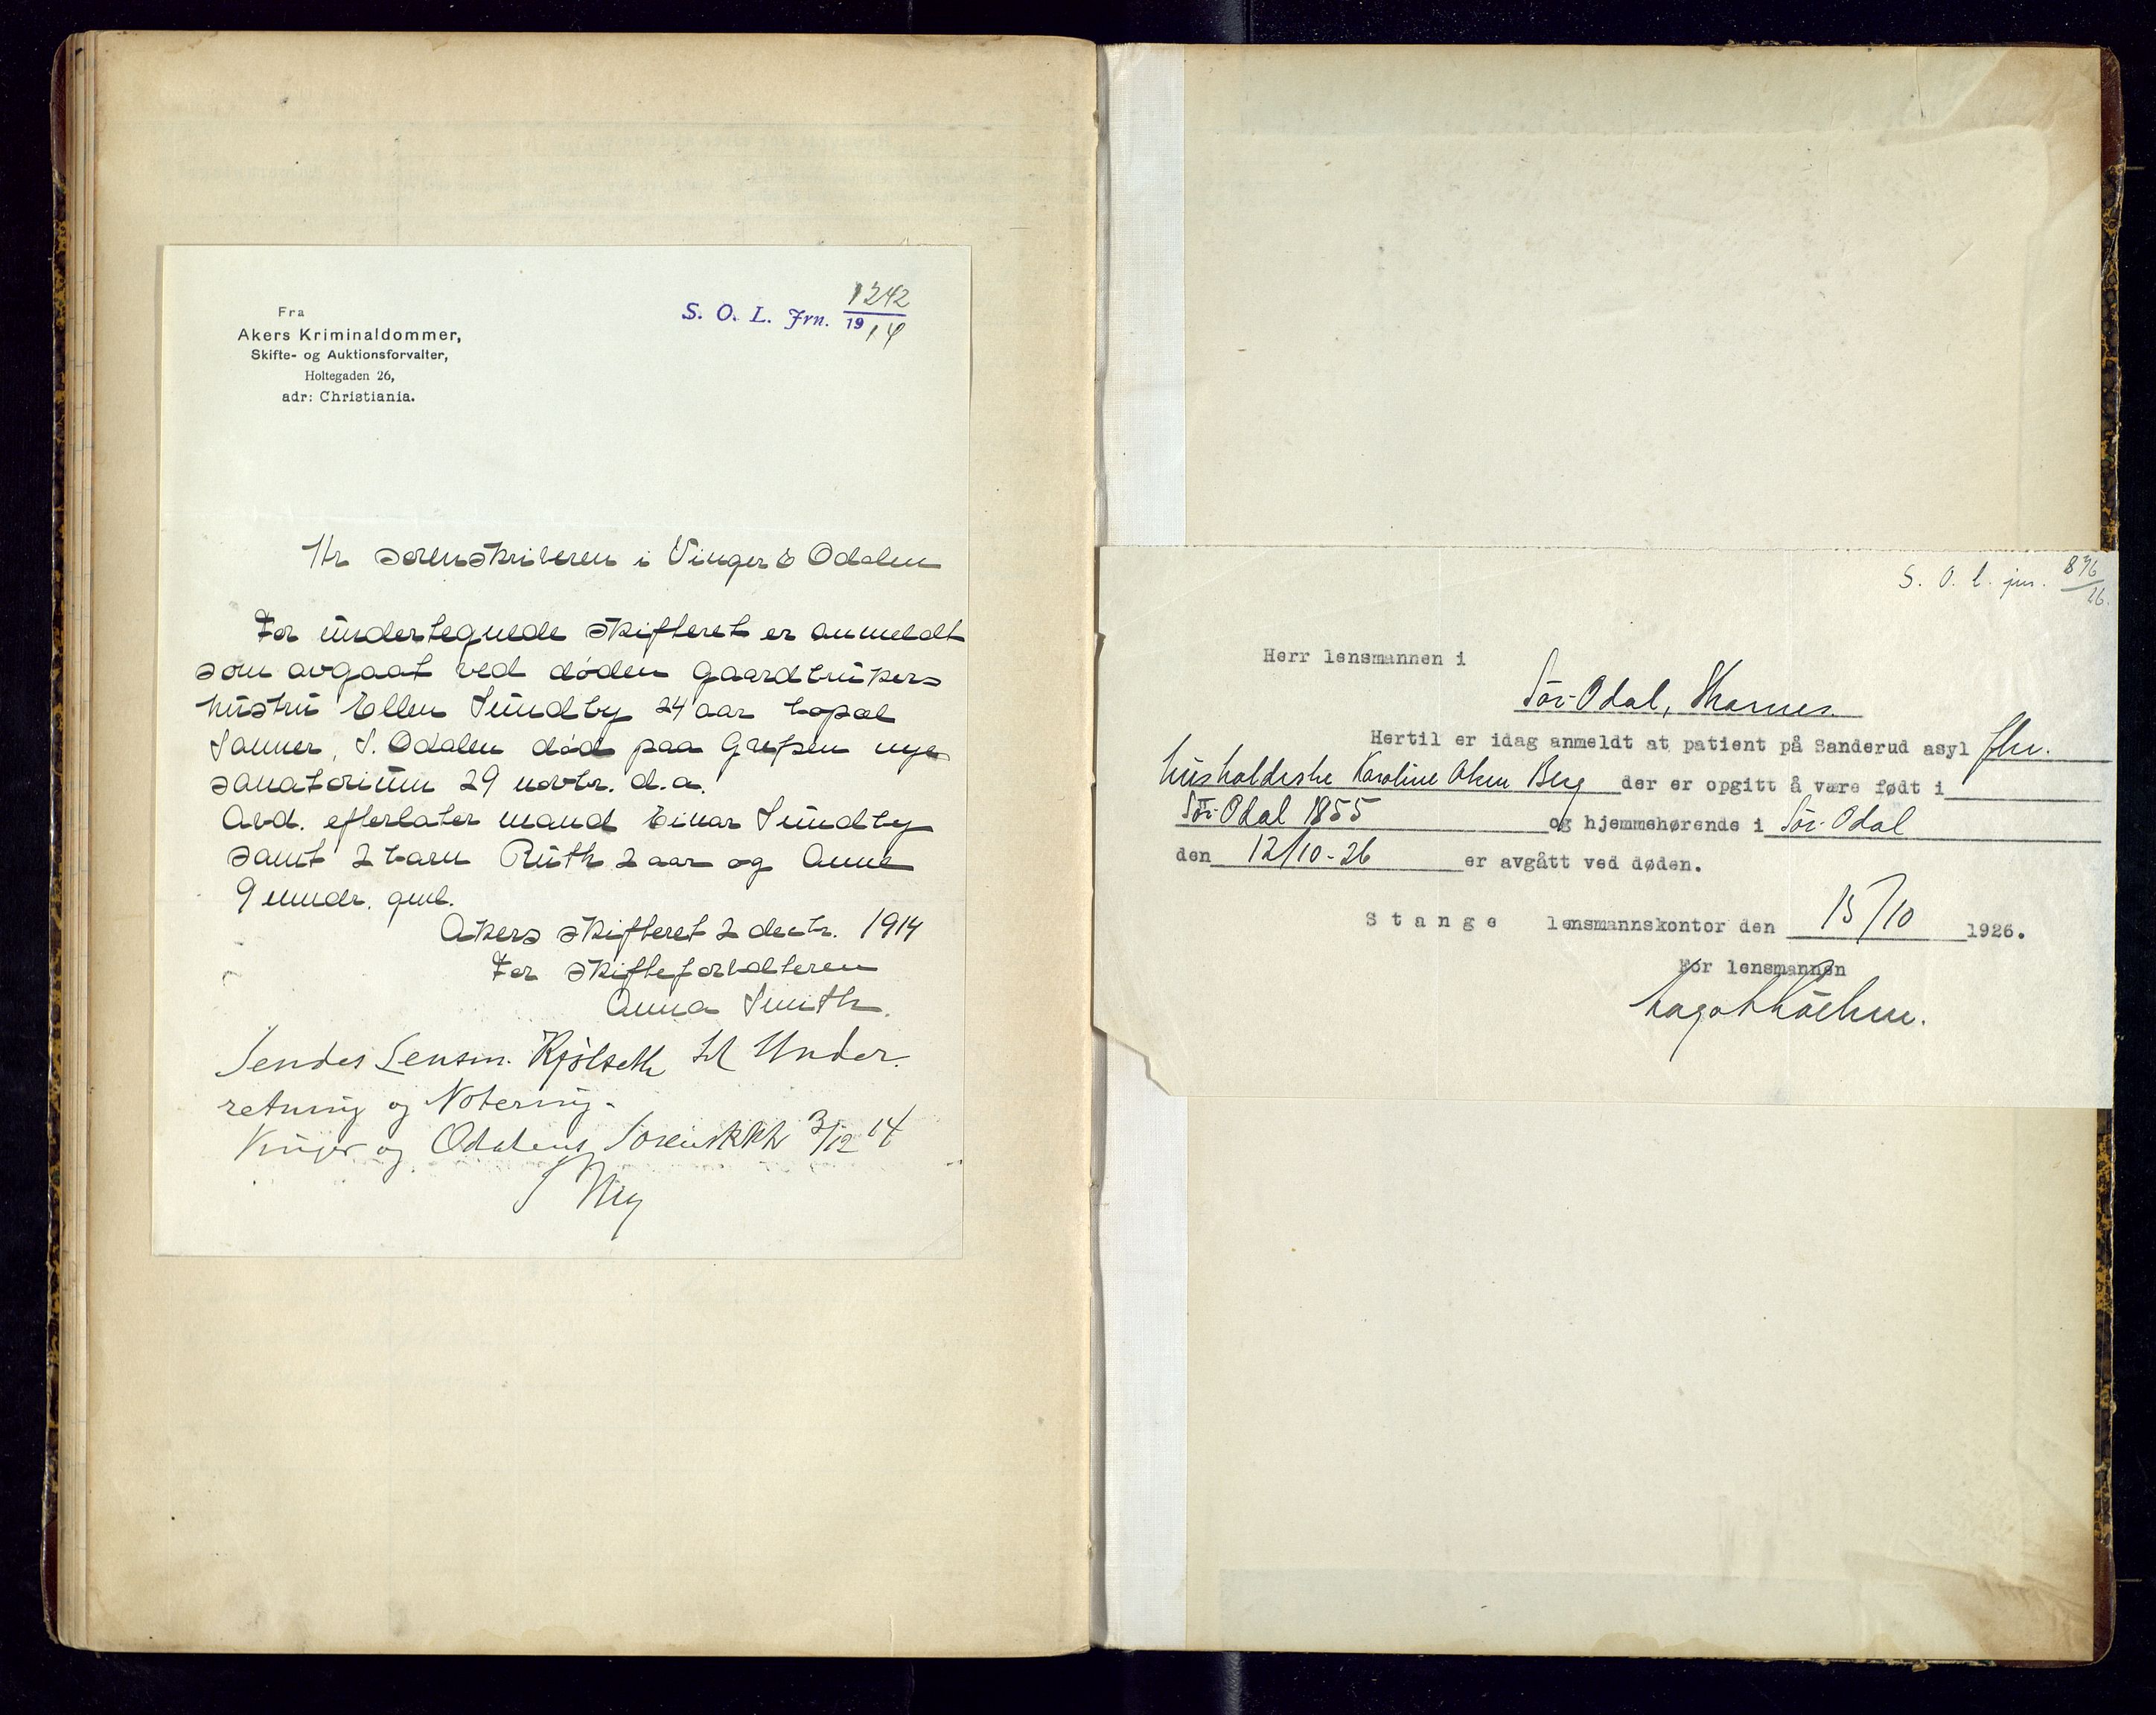 Fra
Akers Kriminaldommer,
Skifte- og Auktionsforvalter,
Holtegaden 26,
adr: Christiania.
S. O. L. Jrn. 1242
1914
Hr sorenskriveren i Vinger & Odalen
For undertegnede skifteret er anmeldt
som avgaat ved døden gaardbrukers
hustru Ellen Sundby 24 aar bopæl
Sanner, S. Odalen død paa Grefsen nye
sanatorium 29 novbr. d.a.
Avd. efterlater mand Einar Sundby
samt 2 barn Ruth 2 aar og Anne
9 mndr. gml.
Akers skifteret 2 decbr. 1914
For skifteforvalteren
Anna Smith.
Sendes Lensm. Kjölseth til Under-
retning og Notering.
Vinger og Odalens Sorenskr 3/12 14
S. O. l. jnr. 876/26.
Herr lensmannen i
Sör-Odal, Skarnes.
Hertil er idag anmeldt at patient på Sanderud asyl fhv.
husholderske Karoline Olsen Berg der er opgitt å være født i
Sör-Odal 1855 og hjemmehørende i Sör-Odal
den 12/10-26 er avgått ved døden.
Stange lensmannskontor den 15/10 1926.
For lensmannen